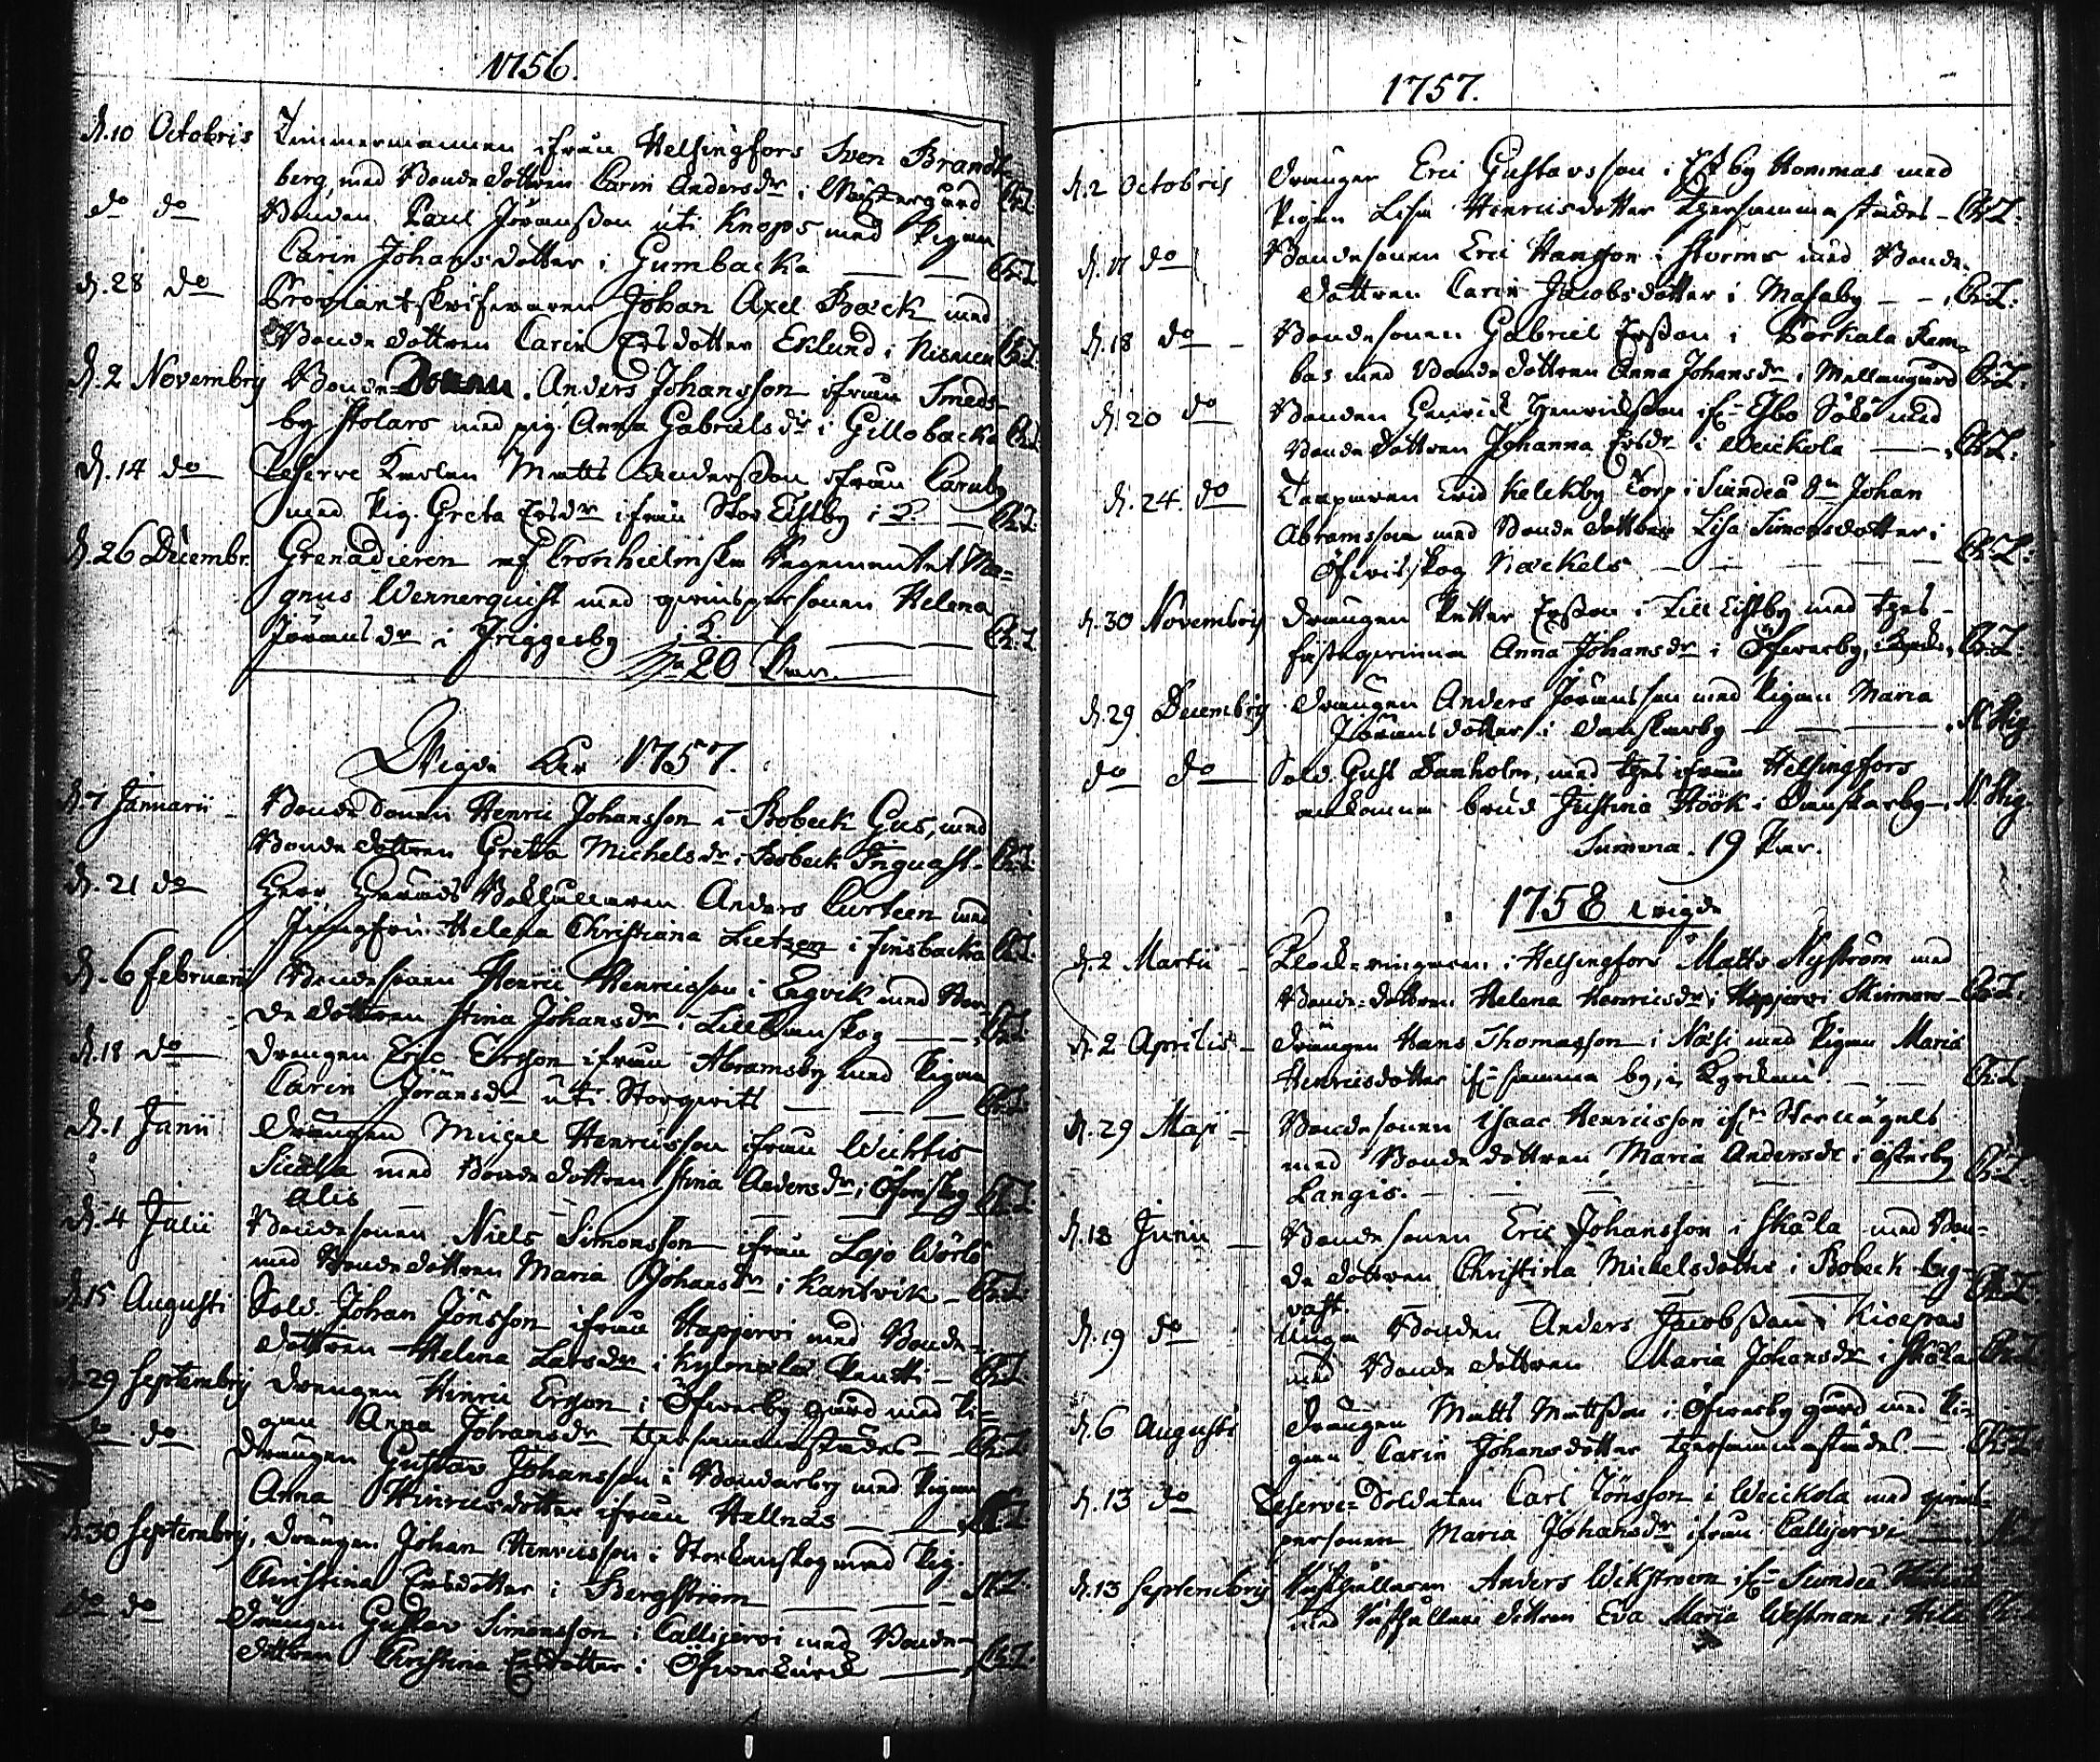 1756.
d. 10 Octobris Timmermannen ifrån Helsingfors Sven Brandt-
berg, med Bonde dottren Carin Andersdr i Westergård Ch:L:
do do Bonden Paul Jöransson uti Knops med Pigan
Carin Johansdotter i Gumbacka Ch:L:
d. 28 do Proviantskrifwaren Johan Axel Back med
Bonde dottren Carin Ersdotter Eklund i Ch:L:
d. 2 Novembris Bonde Anders Johansson ifrån Smeds-
by Stolars med pig. Anna Gabrielsdr i Gillobacka Ch:L:
d. 14 do Reserve Karlen Matts Andersson ifrån Caruby
med Pig. Greta Ersdr ifrån Stor Estby i S. Ch:L:
d. 26 Decembr. Grenadieren af Cronhielmska Regementet Ma-
gnus Wennerquist med qwinspersonen Helena
Jöransdr i Friggesby i K. Ch:L:
Sa 20 Par.
Wigde Åhr 1757.
d. 7 Januarii Bonde Sonen Henric Johansson i Bobeck Gus, med
Bonde dottren Greta Michelsdr i Bobeck Inguast. Ch:L:
d. 21 do Herr Härads Bokhållaren Anders Curteen med
Jungfru Helena Christiana Lietzen i Finsbacka Ch:L:
d. 6 Februarii Bondesonen Henric Henricsson i Engvik med Bon-
de dottren Stina Johansdr i Lill Kanskog Ch:L:
d. 18 do Drengen Eric Ersson ifrån Abramsby med Pigan
Carin Jöransdr uti Storqwits Ch:L:
d. 1 Junii Drängen Michel Henricsson ifrån Wichtis
med Bonde dottren Stina Andersdr i Öfwerskog Ch:L:
alis
d. 4 Julii Bondesonen Niels Simonsson ifrån Lojo Wörlö
med Bonde dottren Maria Johansdr i Kantvik Ch:L:
d. 15 Augusti Sold. Johan Jönsson ifrån Hapjerwi med Bonde-
dottren Helena Larsdr i Kylmälä Pentti Ch:L:
d. 29 Septembris Drengen Hinric Ersson i Öfwerby gård med Pi-
gan Anna Johansdr thersammastädes Ch:L:
do do Drängen Gustav Johansson i Bondarby med Pigan
Anna Hinricsdotter ifrån Hellnäs
d. 30 Septembris, Drängen Johan Henricsson i Storkanskog med Pig.
Christina Ersdotter i Bergström
do do Drängen Gustav Simonsson i Callijerwi med Bonde-
dottren Christina Ersdotter i Öfwerkurck Ch:L:
1757.
d. 2 Octobris Drängen Eric Gustavsson i Estby Hommas med
Pigan Lisa Henricsdotter thersammastädes Ch:L:
d. 17 do Bondesonen Eric Hansson i Storms med Bonde-
dottren Carin Jacobsdotter i Masaby Ch:L:
d. 18 do Bondesonen Gabriel Ersson i Porkala Rem-
bas med Bonde dottren Anna Johansdr i Mellangård Ch:L:
d. 20 do Bonden Henrick Henricksson ifr. Esbo Sökö med
Bonde dottren Johanna Ersdr i Weickola Ch:L:
d. 24. do Torparen wid Kelckby Torp i Siundeå Sn Johan
Abramsson med Bonde dottren Lisa Simonsdotter i
Öfwitskog Nackels Ch:L:
d. 30 Novembris Drängen Petter Ersson i Lill Estby med thes
fästeqwinna Anna Johansdr i Öfwerby, i Kyrkan Ch:L:
d. 29 Decembris Drängen Anders Jöransson med Pigan Maria
Jöransdotter i Danskarby N Hig
do do Sold. Gust. Danholm, med thes ifrån Helsingfors
ankomna brud Justina Höök i Danskarby N Hig.
Summa. 19 Par.
1758 wigde
d. 2 Martii Klock-ringaren i Helsingfors Matts Nyström med
Bonde-dottren Helena Henricsdr i Hapjerwi Skinnars Ch:L:
d. 2 Aprilis Drängen Hans Thomasson i Näsi med Pigan Maria
Henricsdotter ifr. samma by, i Kyrckan. Ch:L:
d. 29 Maji Bondesonen Isaac Henricsson ifrn Sternägels
med Bonde dottren Maria Andersdr i Österby
Langis. Ch:L:
d. 18 Junii Bonde sonen Eric Johansson i Skåla med Bon-
de dottren Christina Michelsdotter i Bobeck Ing-
vast. Ch:L:
d. 19 do Unga Bonden Anders Jacobsson i
med Bonde dottren Maria Johansdr i Skåla Ch:L:
d. 6 Augusti Drängen Matts Mattsson i Öfwerby gård med Pi-
gan Carin Johansdotter thersammastädes Ch:L:
d. 13 do Reserve-Soldaten Carl Jönsson i Weickola med qwins-
personen Maria Johansdr ifrån Callijerwi
d. 13 Septembris Anders Wikström ifr. Siundeå
med dottren Eva Maria Westman i